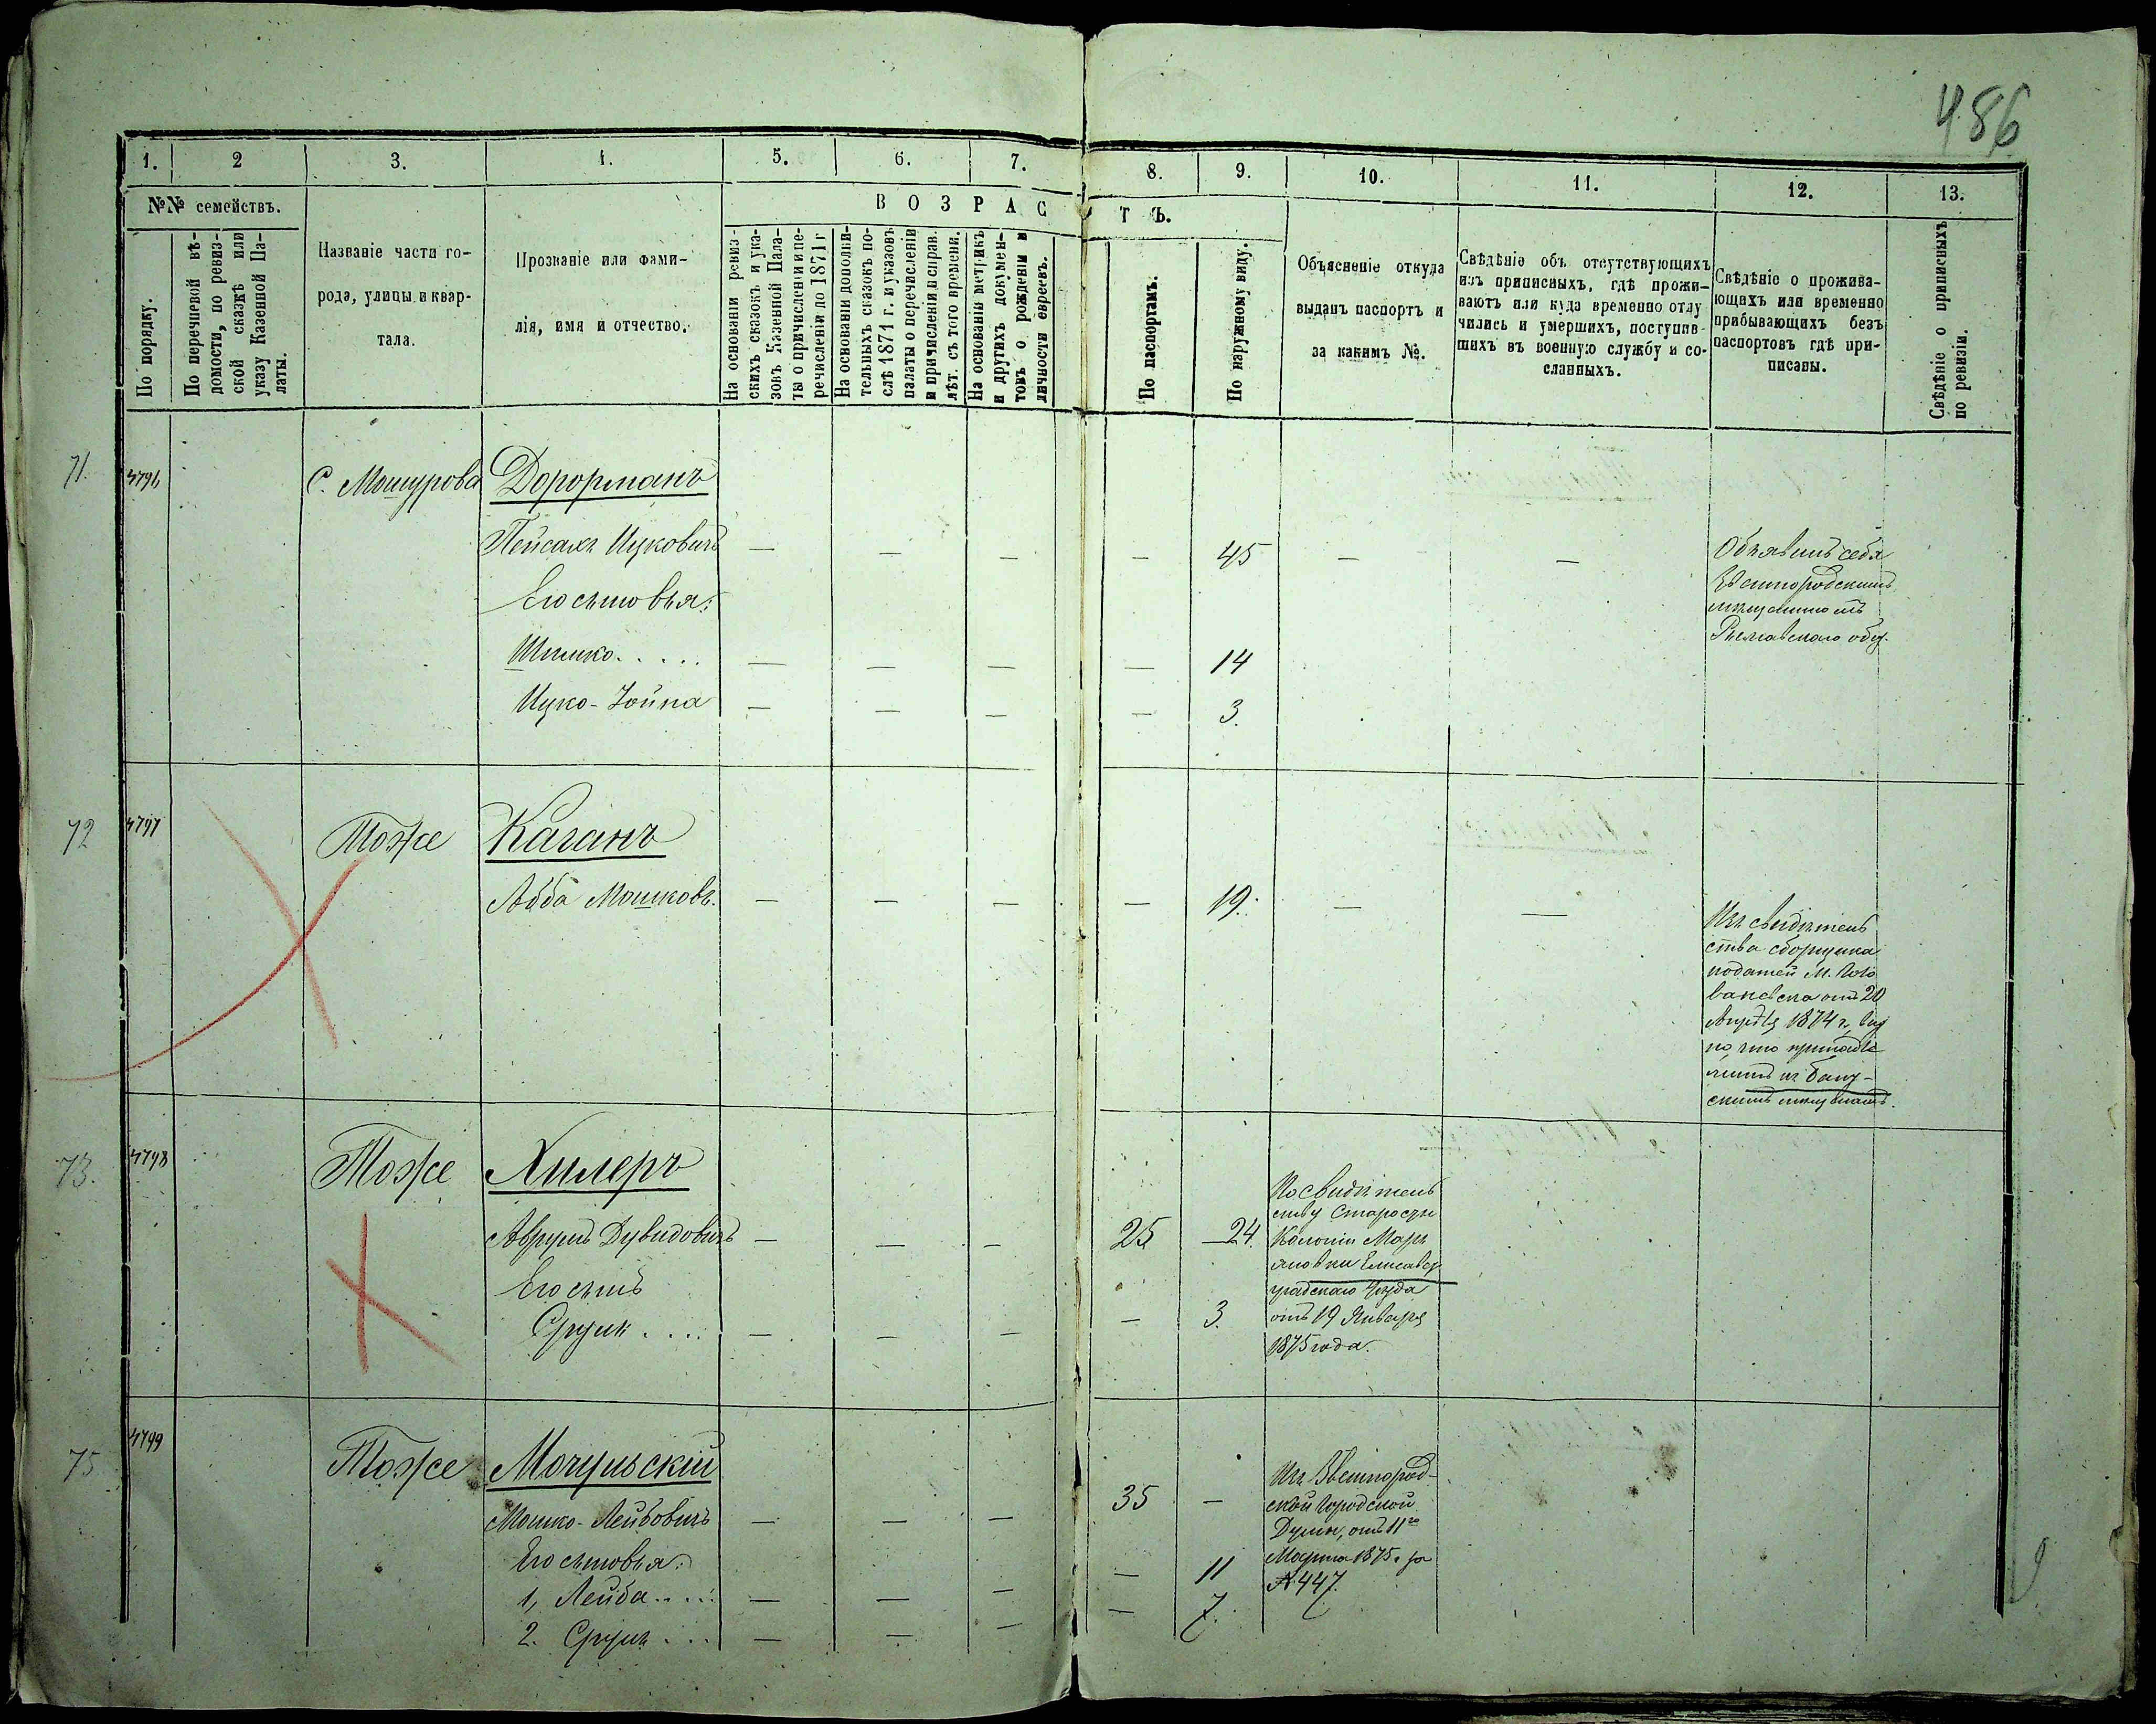 486
1. 2 3. 4. 5. 6. 7. 8. 9. 10. 11. 12. 13.
№№ семействъ.
По порядку.
По перечневой вѣ-
домости, по ревиз-
ской сказкѣ или
указу Казенной Па-
латы.
Названіе части го-
рода, улицы и квар-
тала.
Прозваніе или фами-
лія, имя и отчество.
ВОЗРАСТЪ.
На основаніи ревиз-
скихъ сказокъ и ука-
зовъ Казенной Пала-
ты о причисленіи и пе-
речисленіи по 1871 г
На основаніи дополни-
тельныхъ сказокъ по-
слѣ 1871 г. и указовъ
палаты о перечисленіи
и причисленіи и справ.
лѣт. съ того времени.
На основаніи метрикъ
и другихъ докумен-
товъ о рожденіи и
личности евреевъ.
По паспортамъ.
По наружному виду.
Объясненіе откуда
выданъ паспортъ и
за какимъ №.
Свѣдѣніе объ отсутствующихъ
изъ приписныхъ, гдѣ прожи-
ваютъ или куда временно отлу
чились и умершихъ, поступив-
шихъ въ военную службу и со-
сланныхъ.
Свѣдѣніе о прожива-
ющихъ или временно
прибывающихъ безъ
паспортовъ гдѣ при-
писаны.
Свѣдѣніе о приписныхъ
по ревизіи.
71. 4796 С. Мошурова Дорорманъ
Пейсахъ Ицковичъ — — — — 45 — —
Его сыновья:
Шмико. . . . . — — — — 14
Ицко-Зойна — — — — 3.
Объявилъ себя
Звенигородскимъ
мѣщаниномъ
72 4797 Тоже Каганъ
Абба Мошковъ. — — — — 19. — —
Изъ свидѣтель
ства сборщика
податей М. Голо
ваневска отъ 20
Августа 1874 г. вид
но, что принадле
житъ къ
73. 4798 Тоже Хилеръ
Аврумъ Дувидовичъ — — — 25 24.
Его сынъ
Срулъ . . . . — — — — 3.
По свидѣтель
ству Старосты
Колоніи Марь
яновки Елисавет
градскаго Уѣзда
отъ 19 Января
1875 года.
75 4799 Тоже Мочульскій
Мошко-Лейбовичъ — — — 35 —
Его сыновья:
1, Лейба . . . . — — — — 11
2. Срулъ . . . — — — — 7.
Изъ Звенигород-
ской Городской
Думы, отъ 11го
Марта 1875 г. за
№ 447.